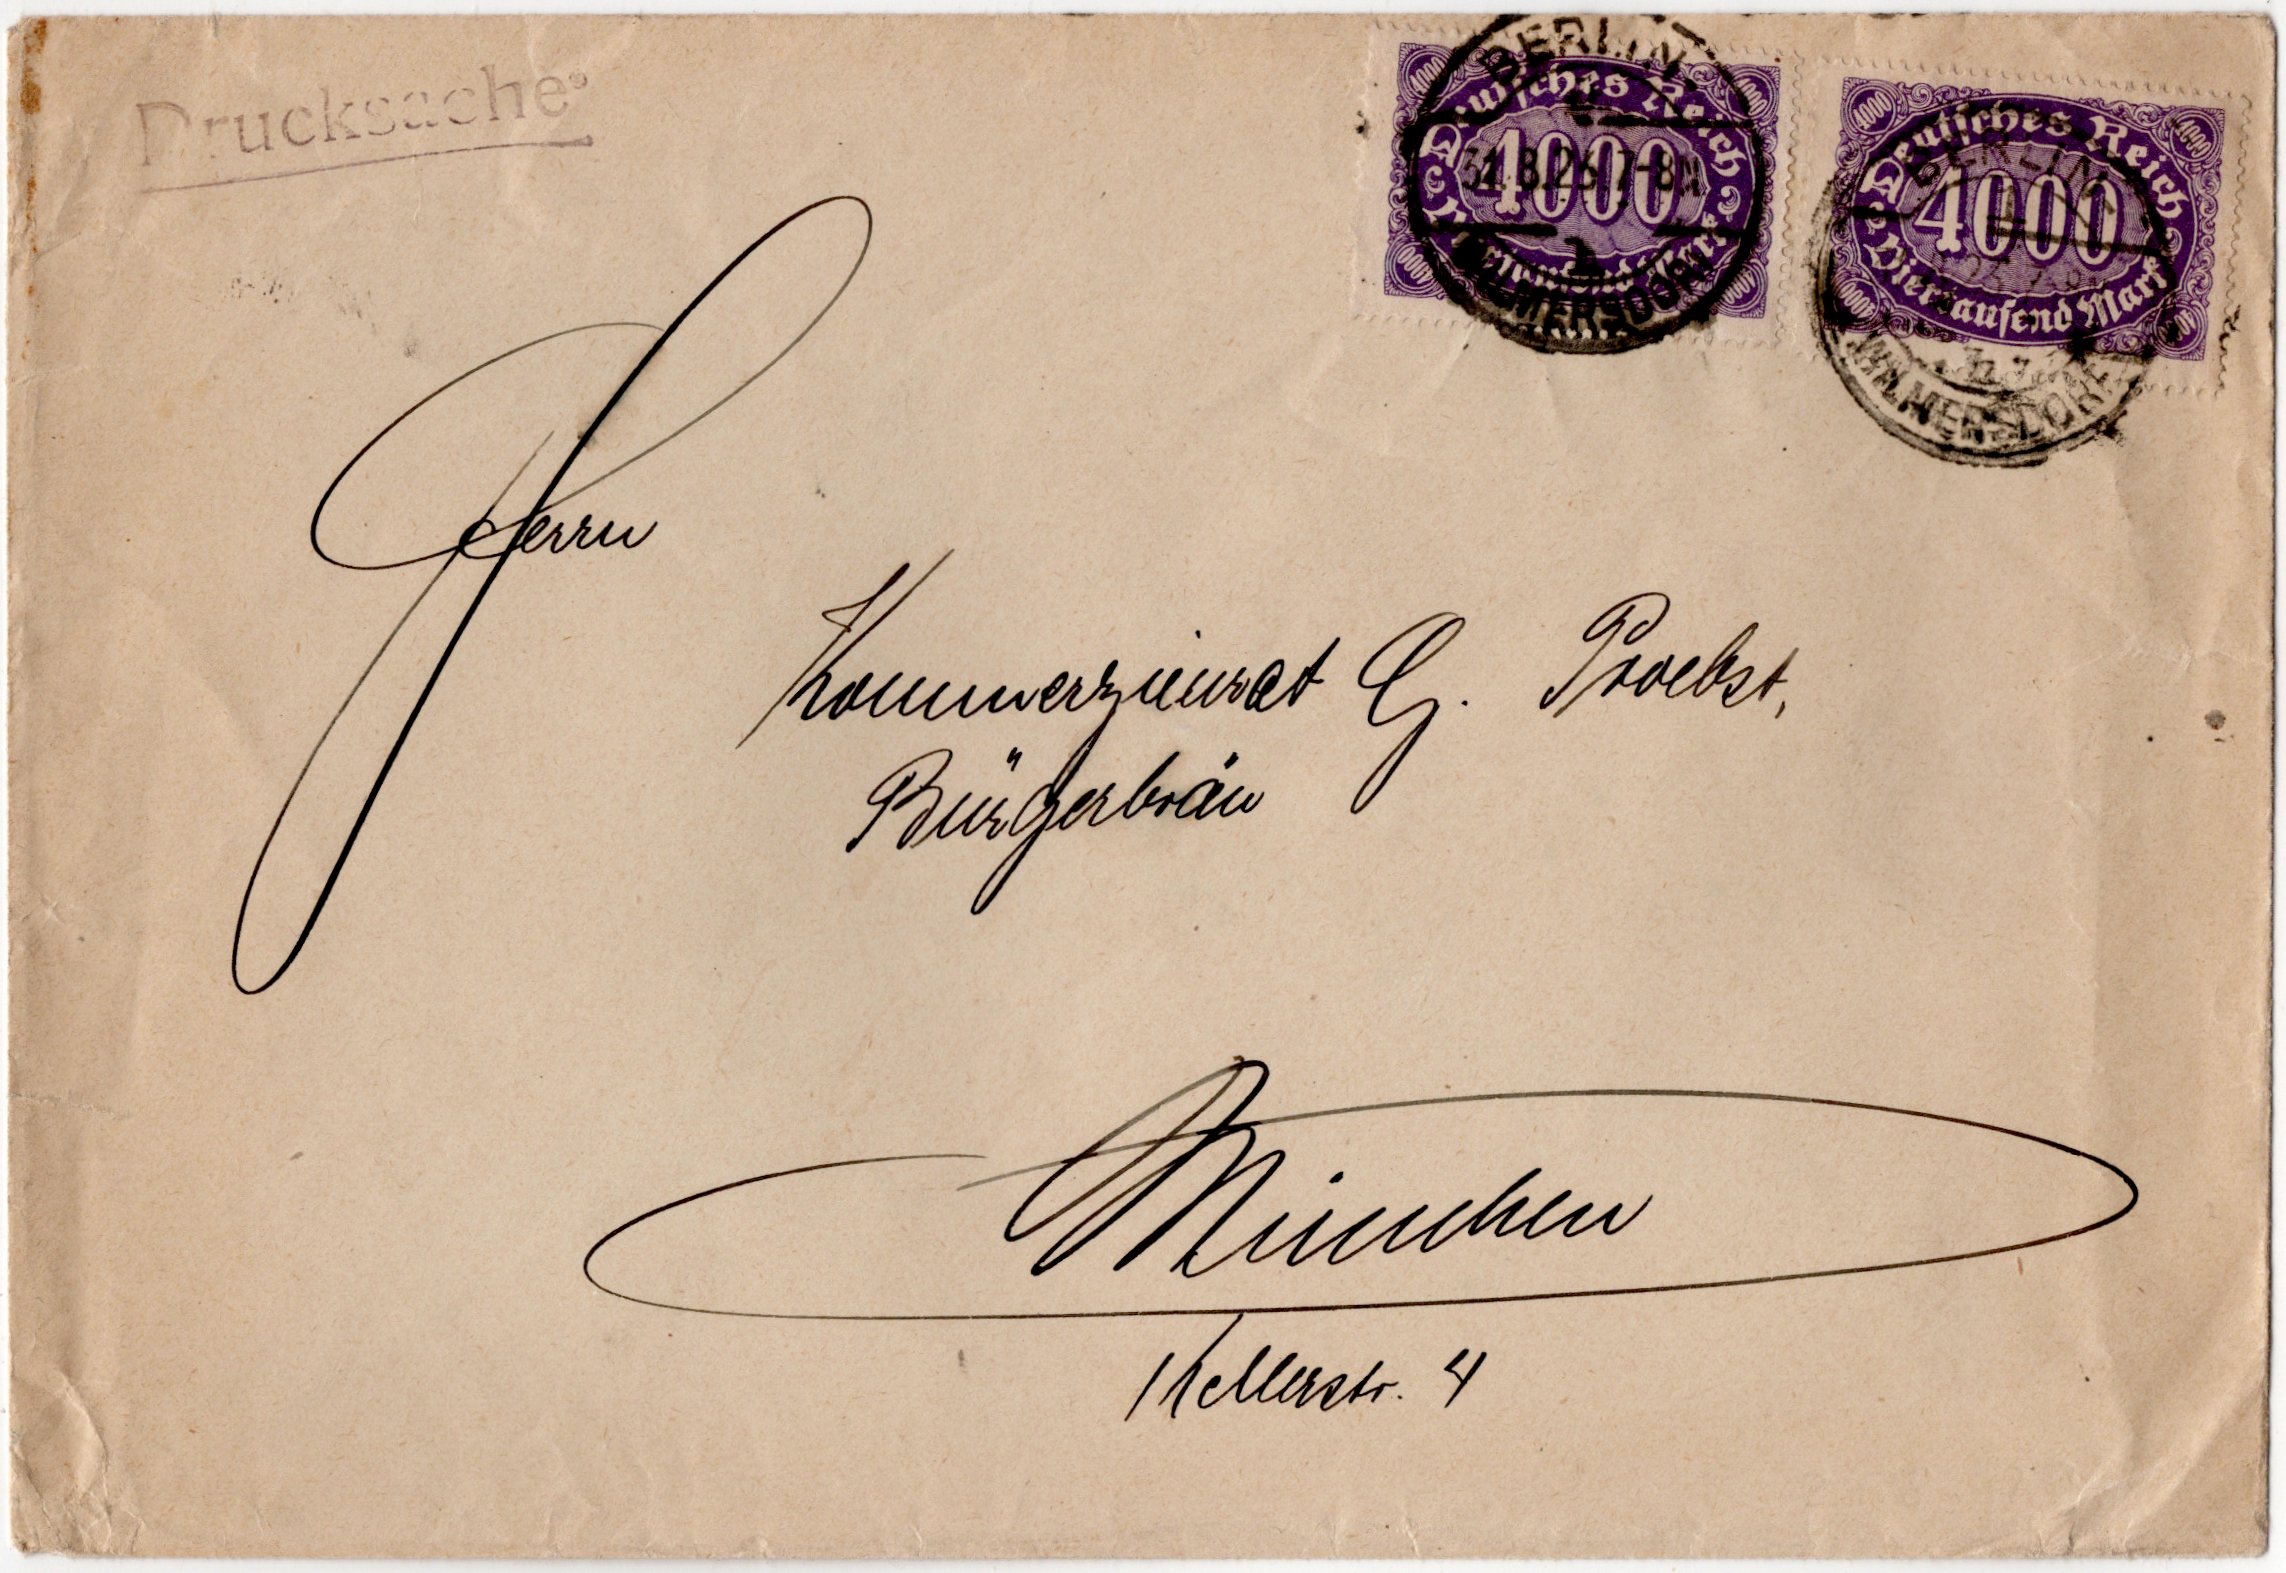 Drucksache
BERLIN
Deutsches Reich
4000
31.8.23.7-8N
Viertausend Mark
WILMERSDORF
BERLIN
Deutsches Reich
4000
Viertausend Mark
WILMERSDORF
Herrn
Kommerzienrat G. Proebst,
Bürgerbräu
München
Kellerstr. 4